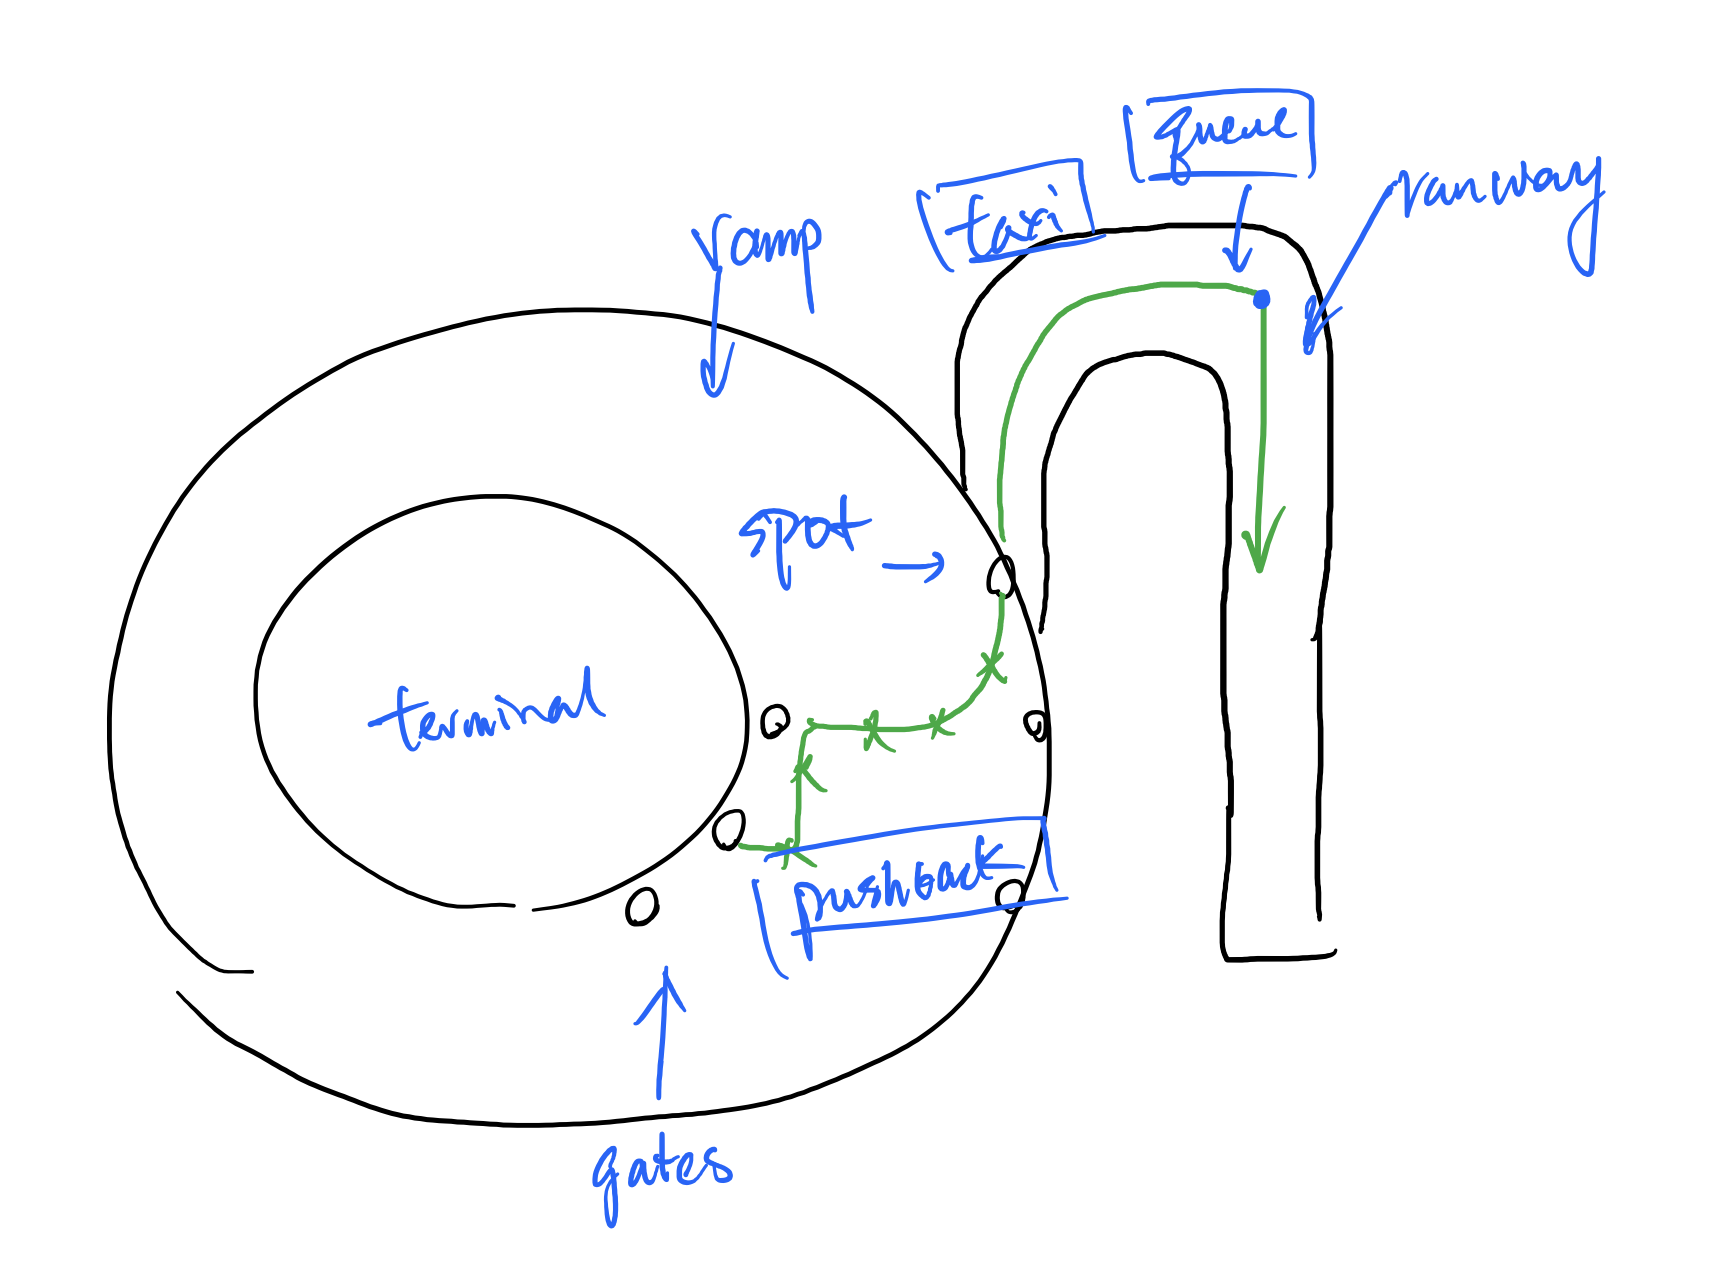 queue
taxi
runway
ramp
spot
terminal
pushback
gates